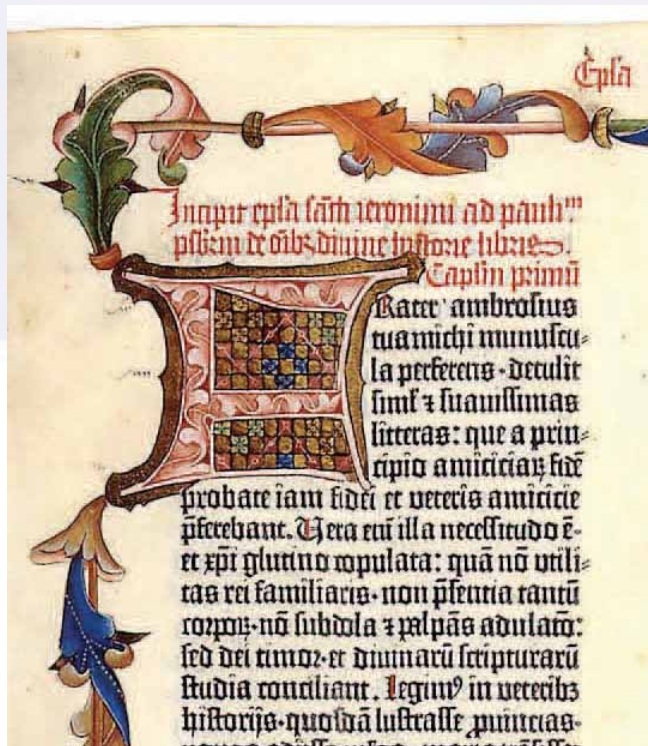 Ep̃la
Incipit ep̃la sãcti ieronimi ad pauliᵘᵐ
p̃sbrm de oĩbꝫ divine historie libris.
Capl̃m primũ
FRater ambrosius
tua michi munuscu⸗
la perferens·detulit
siml̃ ⁊ suavissimas
litteras: que a prin⸗
cipio amiciciaꝝ fidẽ
probate iam fidei et veteris amicicie
p̃ferebant. Vera eni̅ illa necessitudo ẽ·
et xp̃i glutino copulata: quã nõ utili⸗
tas rei familiaris·non p̃sentia tantũ
corpoꝝ·nõ subdola ⁊ palpãs adulatõ:
sed dei timor·et divinarũ scripturarũ
studia conciliant. Legimꝰ in veteribꝫ
historijs·quosdã lustrasse ꝓvincias·